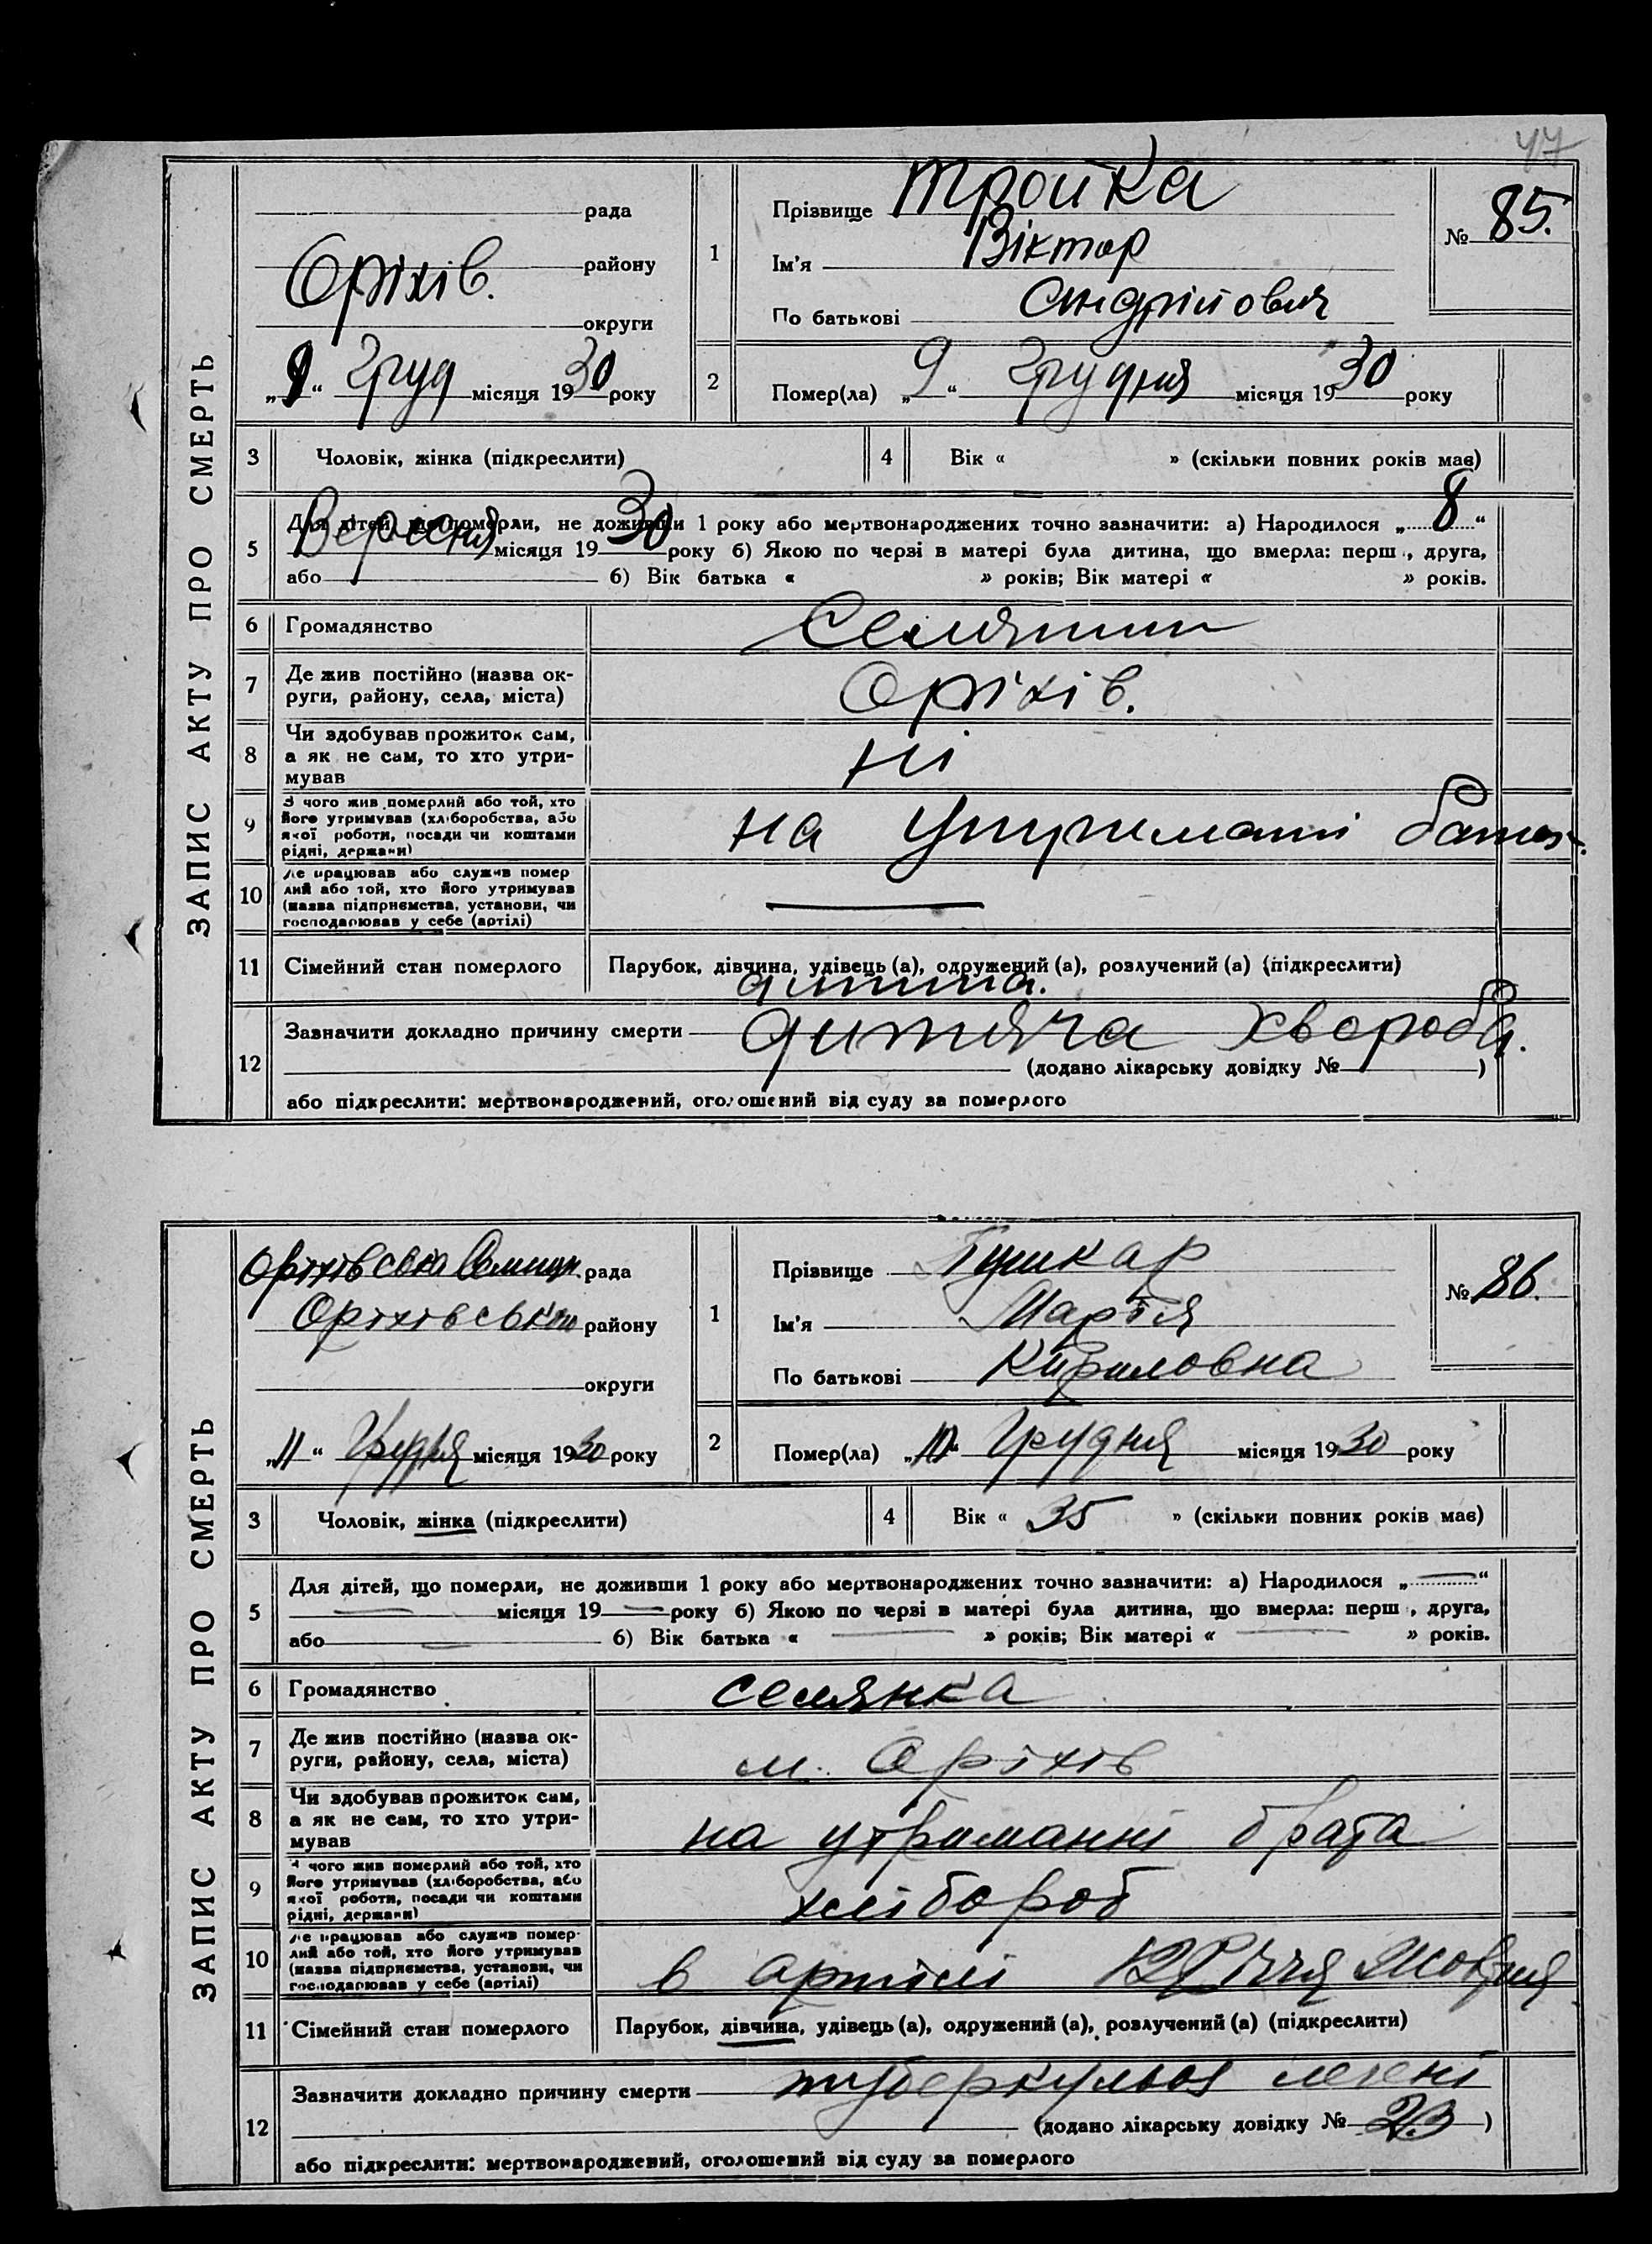 47
ЗАПИС АКТУ ПРО СМЕРТЬ
рада
Оріхів.
району
округи
„9“ Груд місяця 1930 року
1
Прізвище Тройка
Ім'я Віктор
По батькові Андрійович
№ 85.
2
Помер(ла) „9“ Грудня місяця 1930 року
3 Чоловік, жінка (підкреслити)
4 Вік « » (скільки повних років має)
5 Для дітей, що померли, не доживши 1 року або мертвонароджених точно зазначити: а) Народилося „8“
Вересня місяця 1930 року б) Якою по черзі в матері була дитина, що вмерла: перш , друга,
або б) Вік батька « » років; Вік матері « » років.
6 Громадянство Селянин
7 Де жив постійно (назва ок-
руги, району, села, міста) Оріхів.
8 Чи здобував прожиток сам,
а як не сам, то хто утри-
мував ні
9 З чого жив померлий або той, хто
його утримував (хліборобства, або
якої роботи, посади чи коштами
рідні, держави) на утриманні батьк.
10 Де працював або служив помер
лий або той, хто його утримував
(назва підприємства, установи, чи
господарював у себе (артілі)
11 Сімейний стан померлого Парубок, дівчина, удівець (а), одружений (а), розлучений (а) (підкреслити)
дитина.
12 Зазначити докладно причину смерти дитяча хвороба.
(додано лікарську довідку № )
або підкреслити: мертвонароджений, оголошений від суду за померлого
ЗАПИС АКТУ ПРО СМЕРТЬ
Оріхівська рада
Оріхівськ району
округи
„11“ Грудня місяця 1930 року
1
Прізвище Пушкар
Ім'я Марія
По батькові Кириловна
№ 86.
2
Помер(ла) „10“ Грудня місяця 1930 року
3 Чоловік, жінка (підкреслити)
4 Вік « 35 » (скільки повних років має)
5 Для дітей, що померли, не доживши 1 року або мертвонароджених точно зазначити: а) Народилося „—“
— місяця 19— року б) Якою по черзі в матері була дитина, що вмерла: перш , друга,
або — б) Вік батька « — » років; Вік матері « — » років.
6 Громадянство селянка
7 Де жив постійно (назва ок-
руги, району, села, міста) м. Оріхів
8 Чи здобував прожиток сам,
а як не сам, то хто утри-
мував на утриманні брата
9 З чого жив померлий або той, хто
його утримував (хліборобства, або
якої роботи, посади чи коштами
рідні, держави) хлібороб
10 Де працював або служив помер-
лий або той, хто його утримував
(назва підприємства, установи, чи
господарював у себе (артілі) в артілі Жовтня
11 Сімейний стан померлого Парубок, дівчина, удівець (а), одружений (а), розлучений (а) (підкреслити)
12 Зазначити докладно причину смерти туберкульоз легені
(додано лікарську довідку № 23)
або підкреслити: мертвонароджений, оголошений від суду за померлого